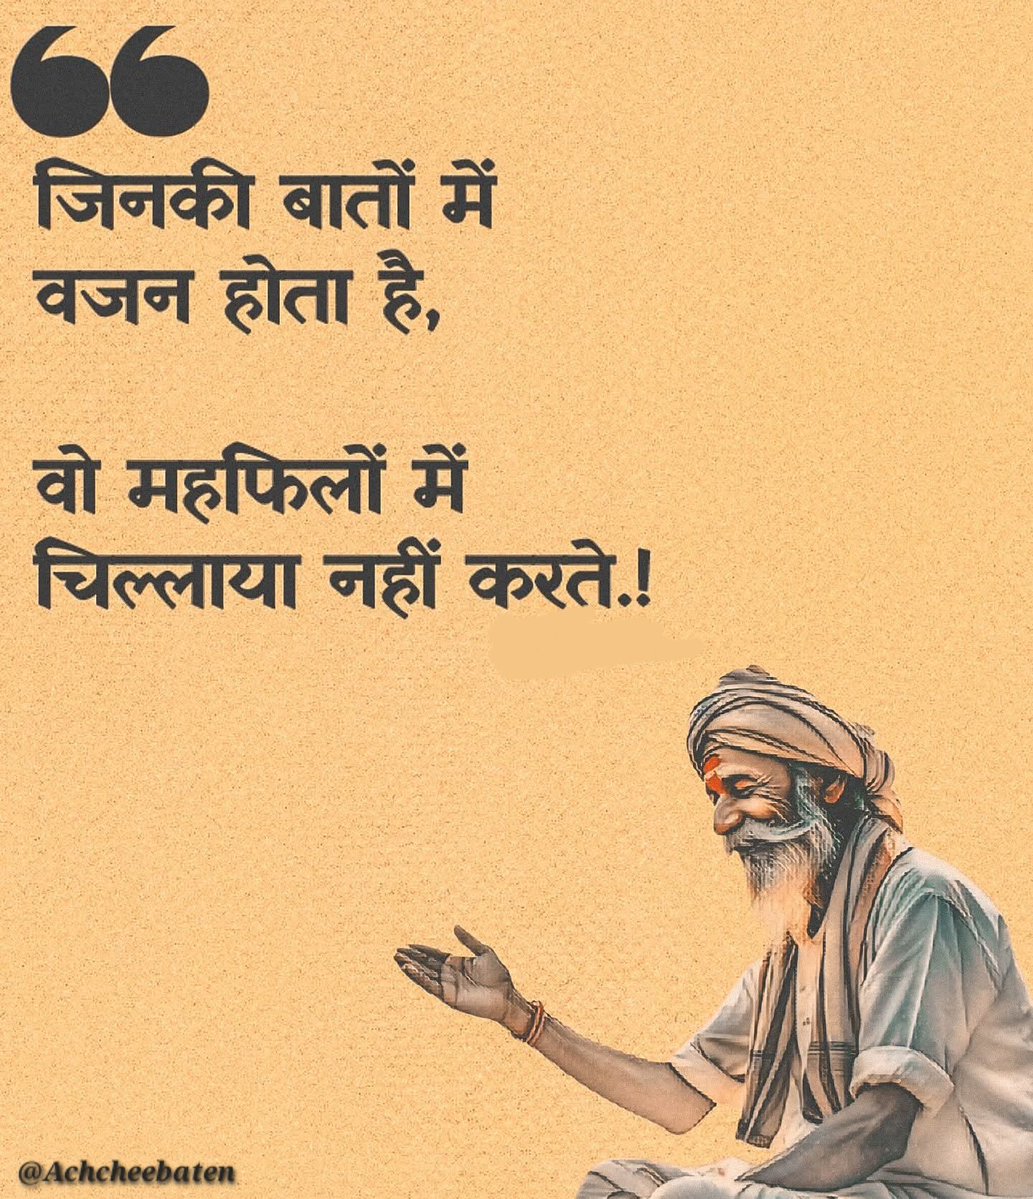 ❝
जिनकी बातों में
वजन होता है,
वो महफिलों में
चिल्लाया नहीं करते.!
@Achcheebaten